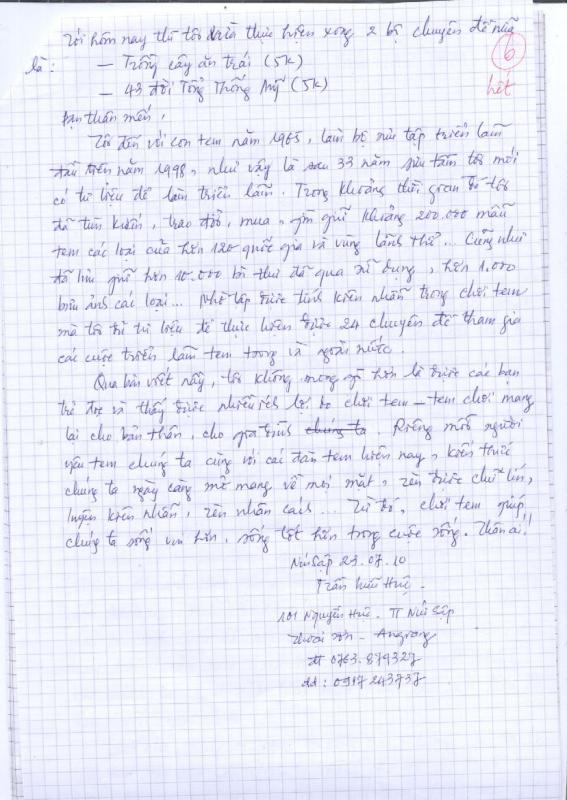 Tới hôm nay thì tôi vừa thực hiện xong 2 bộ chuyên đề nữa
là :
— Trồng cây ăn trái (5k)
— 43 đời Tổng Thống Mỹ (5k)
6
hết
Bạn thân mến,
Tôi đến với con tem năm 1965, làm bộ sưu tập triển lãm
đầu tiên năm 1998, như vậy là sau 33 năm sưu tầm tôi mới
có tư liệu để làm triển lãm. Trong khoảng thời gian đó tôi
đã tìm kiếm, trao đổi, mua, gìn giữ khoảng 200.000 mẫu
tem các loại của hơn 120 quốc gia và vùng lãnh thổ... Cũng như
đã lưu giữ hơn 10.000 bì thư đã qua sử dụng, hơn 1.000
bưu ảnh các loại... Nhờ tập được tính kiên nhẫn trong chơi tem
mà tôi đã tư liệu để thực hiện được 24 chuyên đề tham gia
các cuộc triển lãm tem trong và ngoài nước.
Qua bài viết nầy, tôi không mong gì hơn là được các bạn
trẻ đọc và thấy được nhiều ích lợi do chơi tem – tem chơi mang
lại cho bản thân, cho gia đình chúng ta. Riêng mỗi người
yêu tem chúng ta cùng với các đàn tem hiện nay, kiến thức
chúng ta ngày càng mở mang về mọi mặt, rèn được chữ tín,
luyện kiên nhẫn, rèn nhân cách... Từ đó, chơi tem giúp
chúng ta sống vui hơn, sống tốt hơn trong cuộc sống. Thân ái!
Núi Sập 23.07.10
Trần Hữu Huệ.
101 Nguyễn Huệ. TT Núi Sập
Thoại Sơn – Angiang
đt 0763.879327
dđ : 0917243737